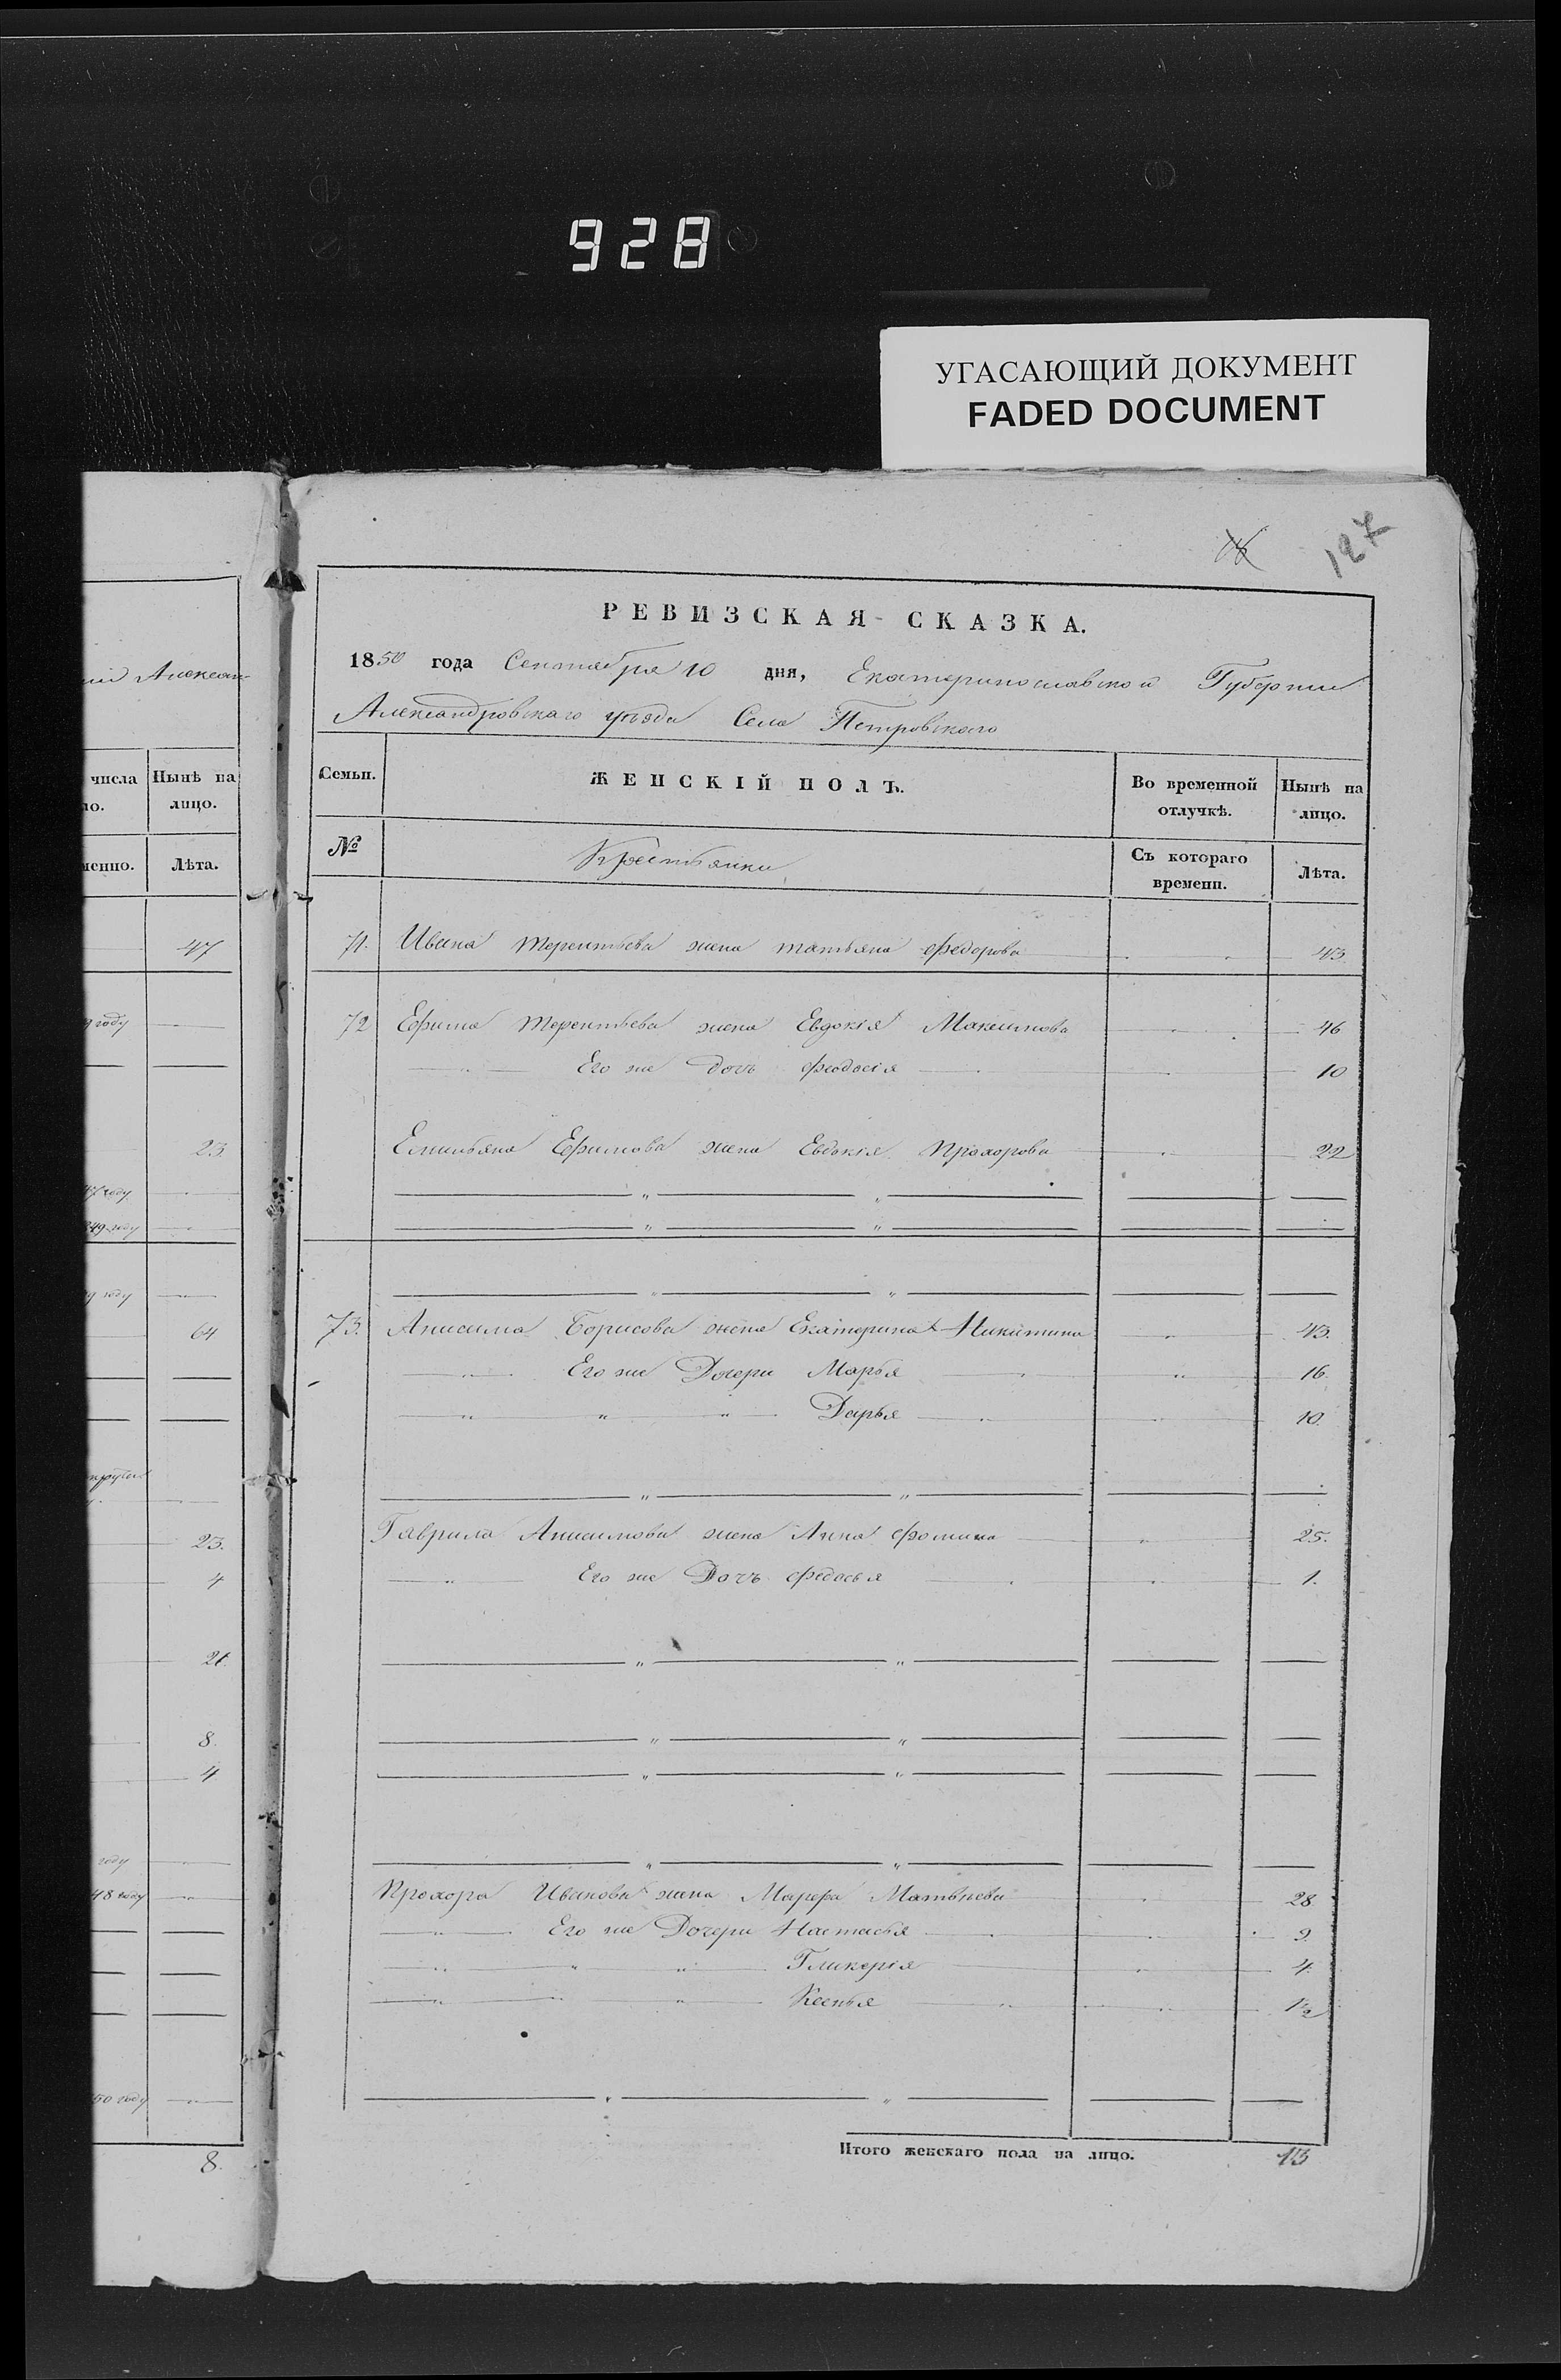 928
УГАСАЮЩИЙ ДОКУМЕНТ
FADED DOCUMENT
127
Алексан-
числа
Нынѣ на
лицо.
Лѣта.
47
году
23.
47 году
849 году
году
64
23.
4
21.
8.
4
году
48 году
50 году
8.
РЕВИЗСКАЯ СКАЗКА.
1850 года Сентября 10 дня, Екатеринославской Губернии
Александровскаго уѣзда Села Петровскаго
Семьи. ЖЕНСКІЙ ПОЛЪ. Во временной отлучкѣ. Нынѣ на лицо.
№ Крестьянки Съ котораго времени. Лѣта.
71. Ивана Терентьева жена татьяна Федорова 43
72 Ефима Терентьева жена Евдокія Максимова 46
Его же дочь Феодосія 10
Емельяна Ефимова жена Евдокія Прохорова 22
73. Анисима Борисова жена Екатерина Никитина 43.
Его же Дочери Марья 16.
Дарья 10.
Гаврила Анисимова жена Анна Фомина 25.
Его же Дочь Федосья 1.
Прохора Иванова жена Марфа Матвѣева 28
Его же Дочери Настасья 9.
Гликерія 4.
Ксенья 1/2
Итого женскаго пола на лицо. 13